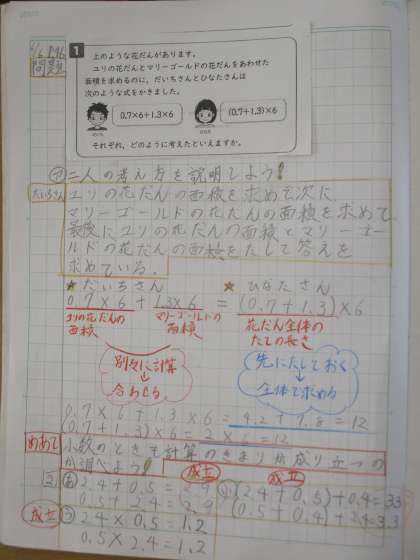 1
上のような花だんがあります。
ユリの花だんとマリーゴールドの花だんをあわせた
面積を求めるのに、だいちさんとひなたさんは
次のような式をかきました。
0.7×6+1.3×6
(0.7+1.3)×6
それぞれ、どのように考えたといえますか。
問題
㋐二人の考え方を説明しよう!
だいちさん
ユリの花だんの面積を求め次に、
マリーゴールドの花だんの面積を求めて
最後にユリの花だんの面積とマリーゴー
ルドの花だんの面積をたして答えを
求めている。
★だいちさん
★ひなたさん
0.7×6+1.3×6=(0.7+1.3)×6
ユリの花だんの
面積
マリーゴールドの
面積
花だん全体の
たての長さ
別々に計算
↓
合わせる
先にたしておく
↓
全体で求める
0.7×6+1.3×6=4.2+7.8=12
(0.7+1.3)×6=2×6=12
めあて
小数のときも計算のきまりが成り立つの
か調べよう!
成立
成立
2
あ 2.4+0.5=2.9
0.5+2.4=2.9
い (2.4+0.5)+0.4=3.3
(0.5+0.4)+2.4=3.3
成立
う 2.4×0.5=1.2
0.5×2.4=1.2